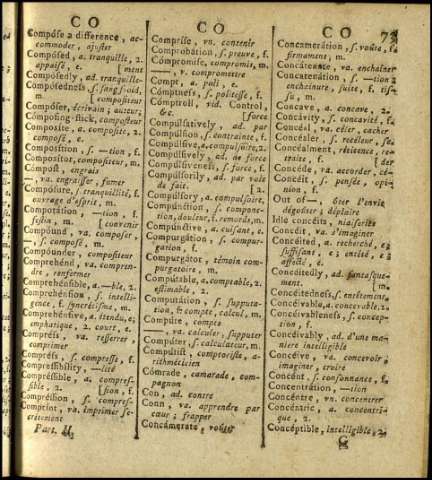 CO
CO
CO
Compóse a difference, ac-
commoder, ajuster
Compósed, a. tranquille, 2.
appaisé, e. [ment
Compósedly, ad. tranquille-
Compósedness, s. sang-froid,
[compositeur
Compóser, écrivain ; auteur;
Compósing-stick, composteur
Cómposite, a. composite, 2.
composé, e.
Composition, s. —tion, f.
Compósitor, compositeur, m.
Cómpost, engrais
—, va. engraisser, fumer
Compósure, s. tranquillité, f.
ouvrage d'esprit, m.
Compotátion, —tion, f.
[convenir
Compóund, va. composer,
—, s. composé, m.
Compóunder, compositeur
Comprehénd, va. compren-
dre, renfermer
Comprehénsible, a. —ble, 2.
Comprehénsion, s. intelli-
gence, f. synecdoche, m.
Comprehénsive, a. étendu, e;
emphatique, 2. court, e.
Compréss, va. resserrer,
comprimer
Compréss, s. compresse, f.
Compressibility, —lité
Compréssible, a. compres-
sible, 2. [sion, f.
Compréssion, s. compres-
Comprint, va. imprimer se-
crètement
Part. II.
Comprise, vn. contenir
Comprobátion, s. preuve, f.
Cómpromise, compromis, m.
—, v. compromettre
Compt, a. poli, e.
Cómptness, s. politesse, f.
Comptróll, vid. Control,
&c. [force
Compúlsatively, ad. par
Compúlsion, s. contrainte, f.
Compúlsive, a. compulsoire, 2.
Compúlsively, ad. de force
Compúlsiveness, s. force, f.
Compúlsorily, ad. par voie
de fait. [2.
Compúlsory, a. compulsoire,
Compúnction, s. componc-
tion, douleur, f. remords, m.
Compúnctive, a. cuisant, e.
Compurgátion, s. compur-
gation, f.
Compurgátor, témoin com-
purgatoire, m.
Compútable, a. comptable, 2.
estimable, 2.
Computátion, s. supputa-
tion, f. compte, calcul, m.
Compúte, compte
—, va. calculer, supputer
Compúter, s. calculateur, m.
Cómputist, comptoriste, a-
rithméticien
Cómrade, camarade, com-
pagnon
Con, ad. contre
Conn, va. apprendre par
cœur ; frapper
Concámerate, voûter
Concamerátion, s. voûte, f.
firmament, m.
Concátenate, va. enchaîner
Concatenátion, s. —tion
enchaînure, suite, f. tis-
su, m.
Cóncave, a. concave, 2.
Concávity, s. concavité, f.
Concéal, va. celer, cacher
Concéaler, s. recéleur, se
Concéalment, réticence, re-
traite, f. [der
Concéde, va. accorder, cé-
Concéit, s. pensée, opi-
nion, f.
Out of—, ôter l'envie
dégoûter ; déplaire
Idle concéits, niaiseries
Concéit, va. s'imaginer
Concéited, a. recherché, e
suffisant, e ; entêté, e ;
affecté, e.
Concéitedly, ad. fantasque-
[ment
Concéitedness, s. entêtement,
Concéivable, a. concevable, 2.
Concéivableness, s. concep-
tion, f.
Concéivably, ad. d'une ma-
niere intelligible
Concéive, va. concevoir,
imaginer, croire
Concént, consonnance, f.
Concentrátion, —tion
Concéntre, vn. concentrer
Concéntric, a. concentri-
que, 2.
Concéptible, intelligible, 2.
G